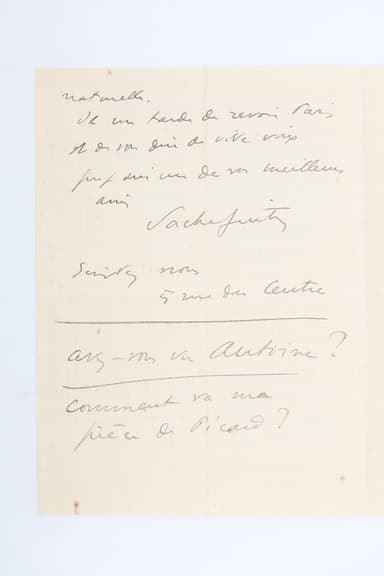 naturelle.
Il me tarde de revoir Paris
et de vous dire de vive voix
que je suis un de vos meilleurs
amis
Sacha Guitry
Ecrivez nous
5 rue du Centre
avez-vous vu Antoine ?
Comment va ma
pièce de Picard ?